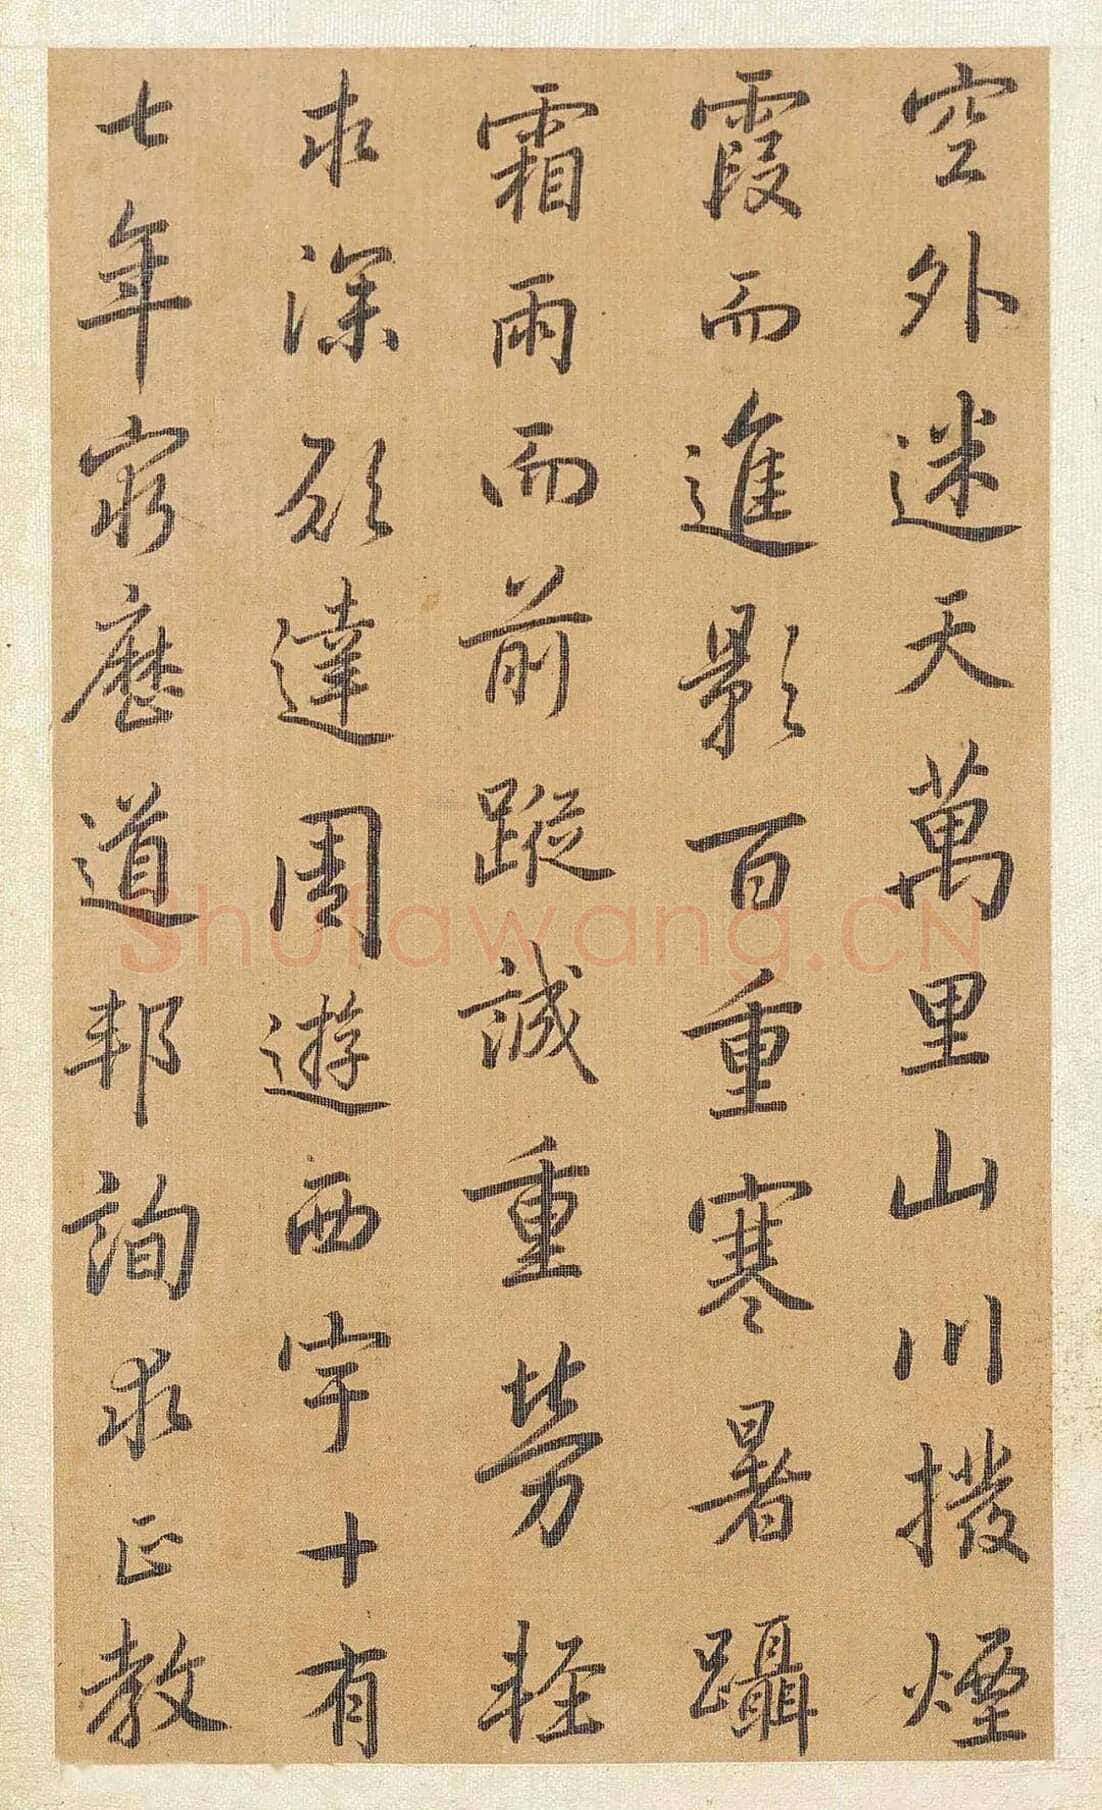 空外迷天萬里山川撥煙
霞而進影百重寒暑躡
霜雨而前蹤誠重勞輕
求深願達周遊西宇十有
七年窮歷道邦詢求正教
Shufawang.CN